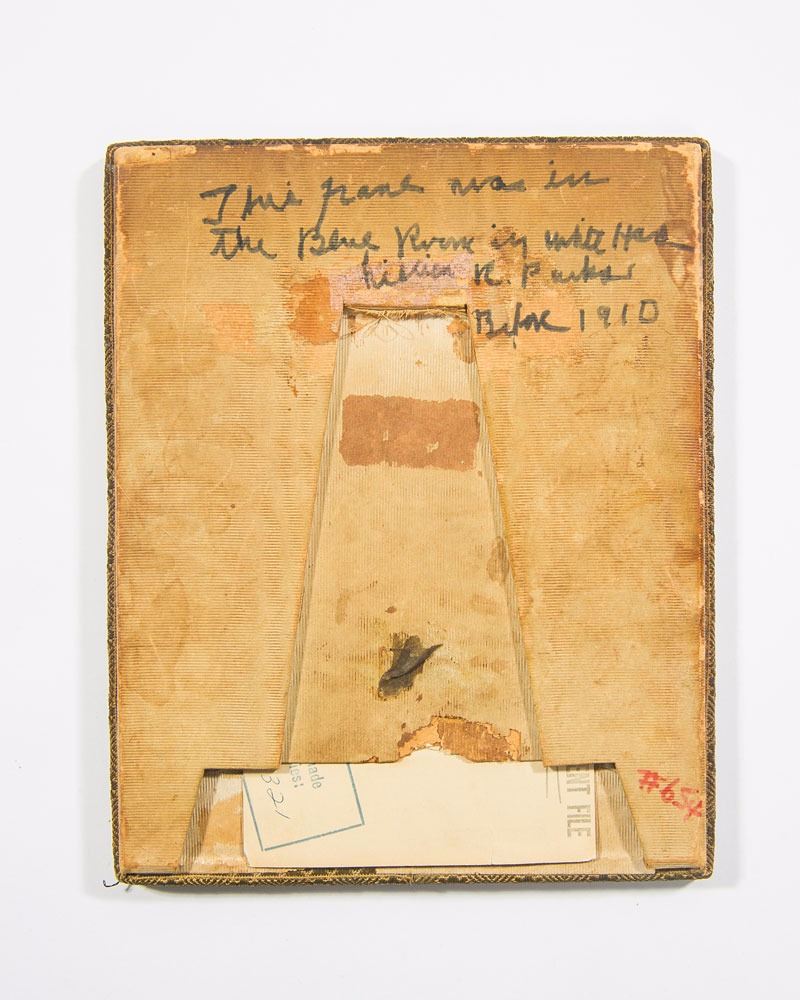 This frame was in
the Blue Room in White Hse
R. Parker
Before 1910
ade
es:
321
ENT FILE
#654